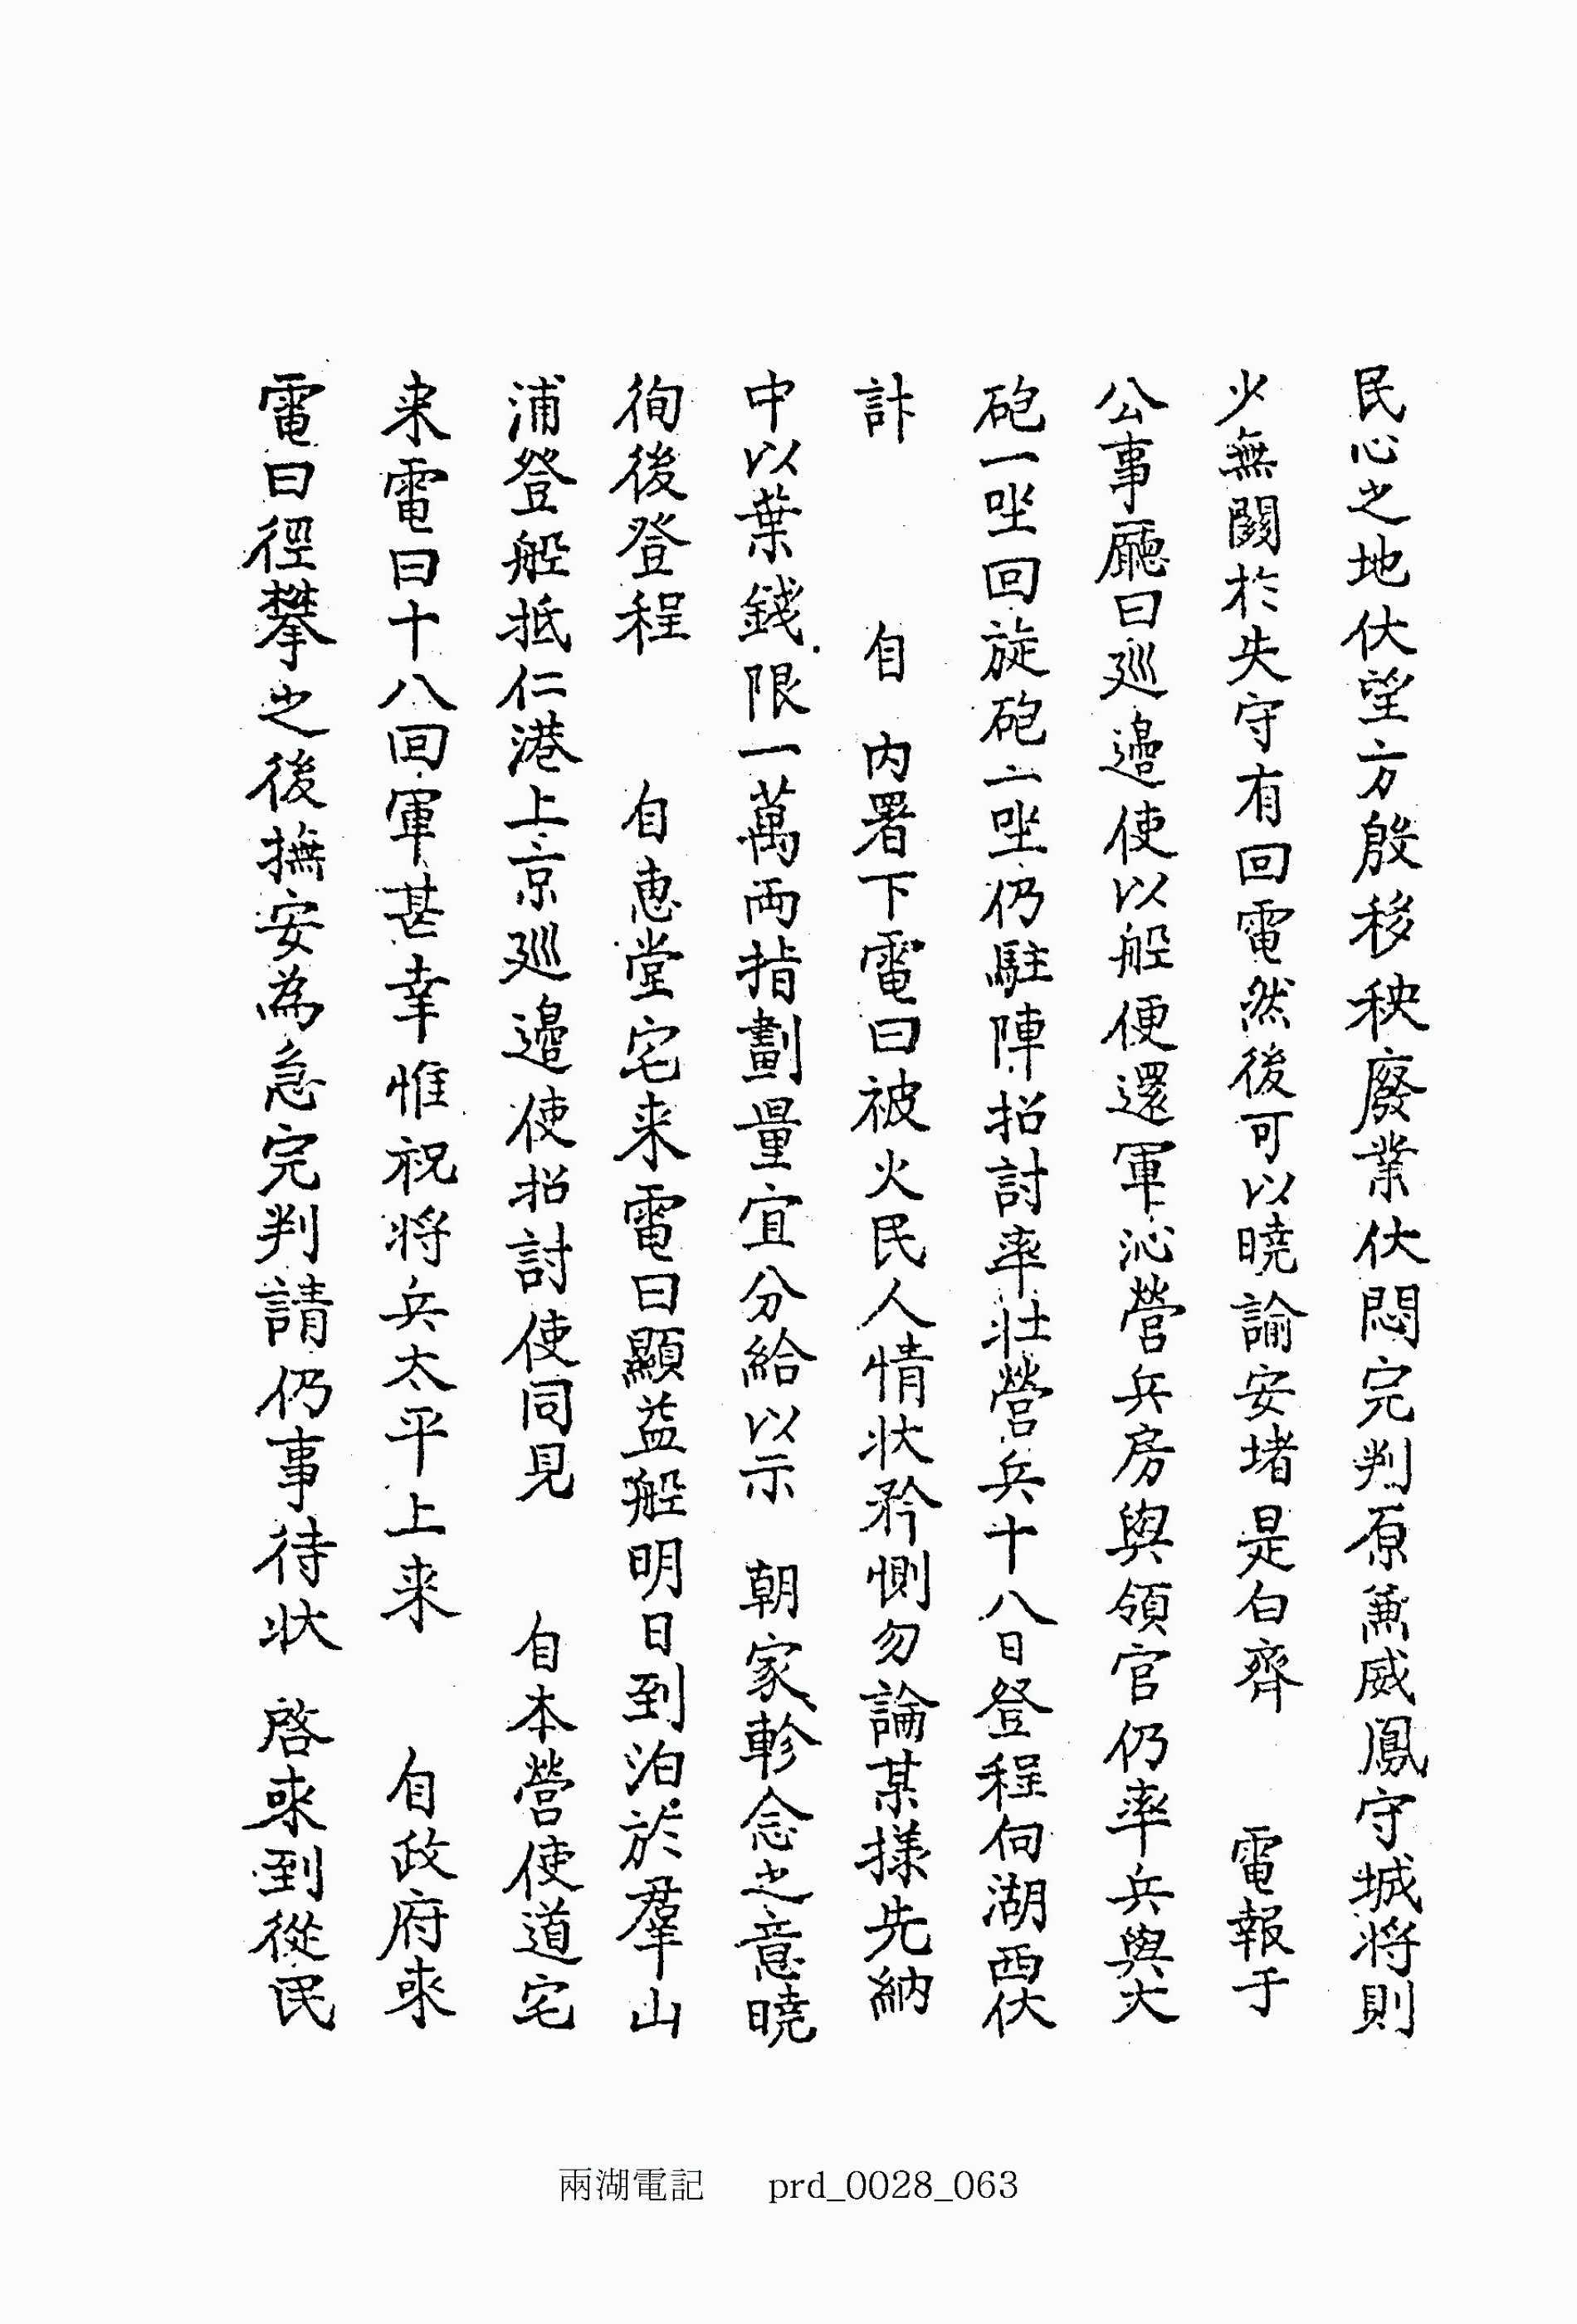 民心之地伏望方殷移秧廢業伏悶完判原兼威鳳守城將則
少無闕於失守有回電然後可以曉諭安堵是白齊 電報于
公事廳曰廵邊使以船便還軍沁營兵房與領官仍率兵與大
砲一坐回旋砲二坐仍駐陣招討率壯營兵十八日登程向湖西伏
計 自 内署下電曰被火民人情状矜惻勿論某様先納
中以葉錢限一萬両指劃量宜分給以示 朝家軫念之意曉
徇後登程 自惠堂宅来電曰顯益船明日到泊於羣山
浦登船抵仁港上京廵邊使招討使同見 自本營使道宅
来電曰十八回軍甚幸惟祝将兵太平上来 自政府來
電曰徑攀之後撫安為急完判請仍事待状 啓來到從民
兩湖電記 prd_0028_063